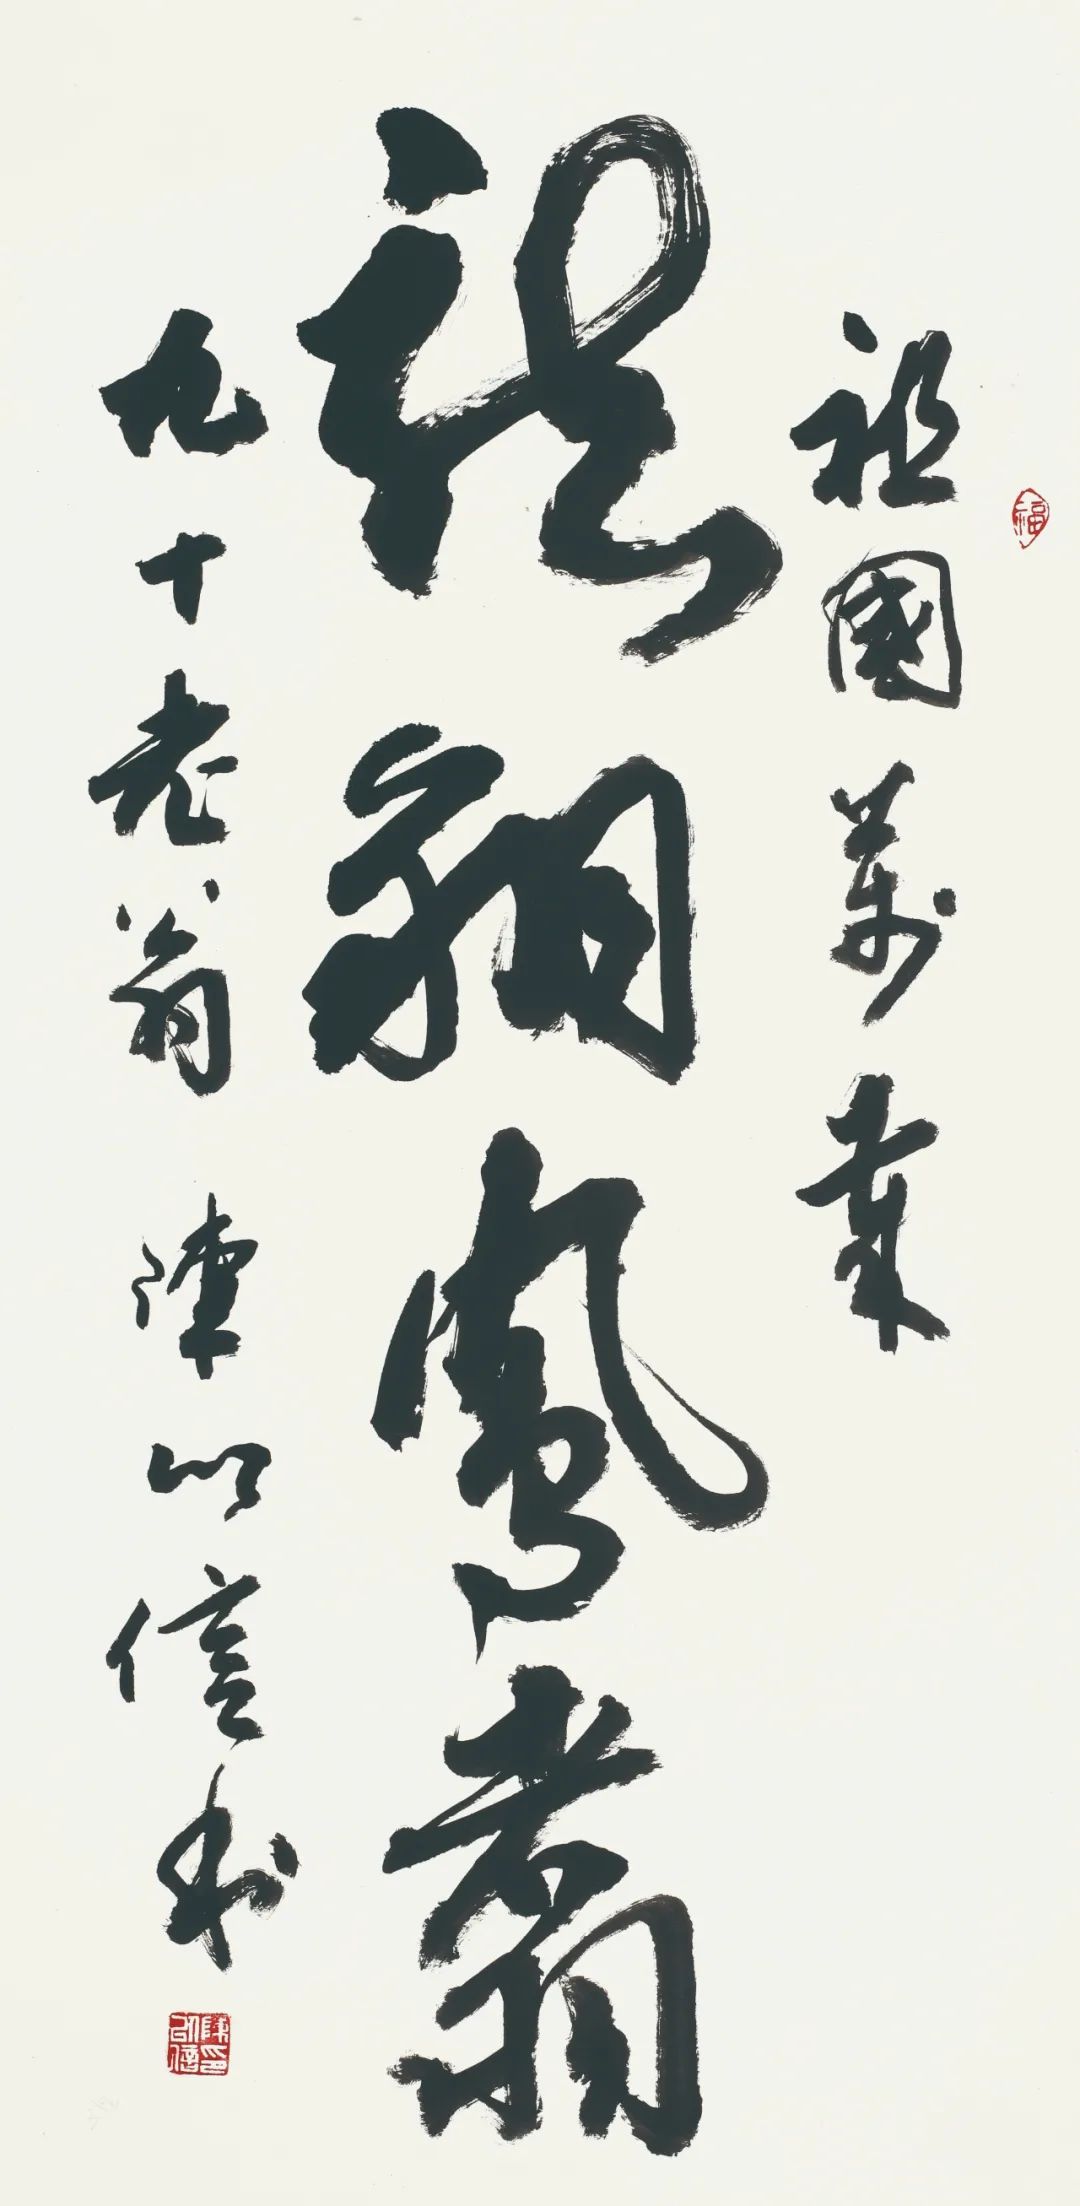 福
祖國萬業
龍翔鳳翥
九十老翁 陳以信书
陳印以信